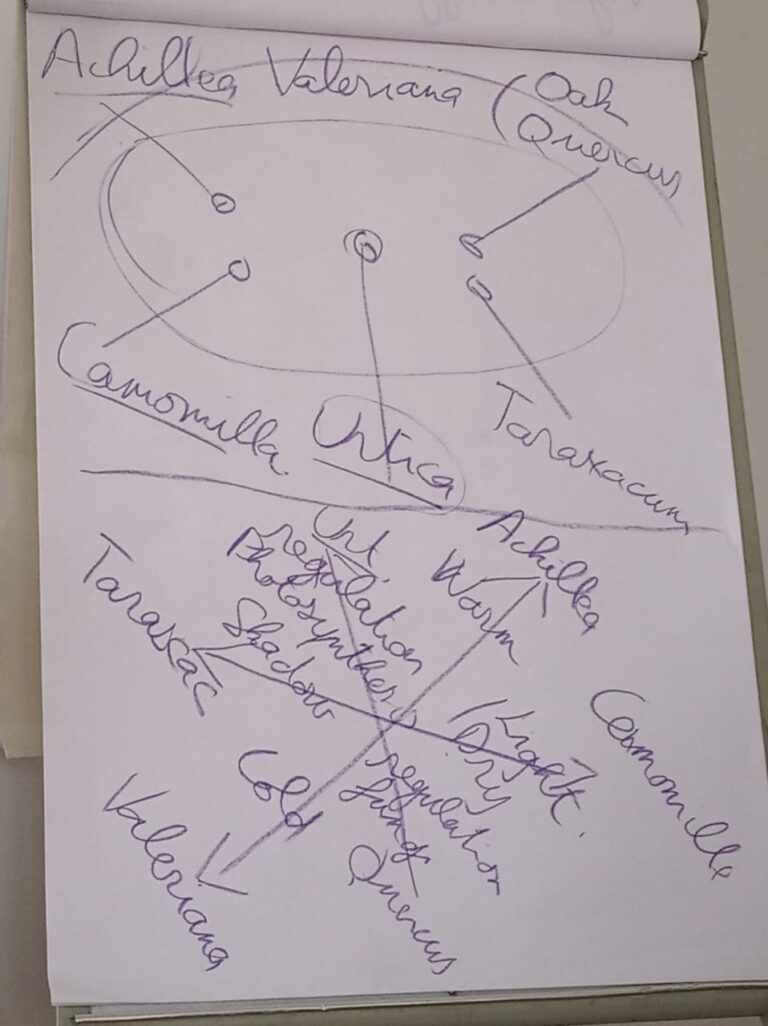 Achillea Valeriana (Oak
Quercus
Camomilla
Urtica
Taraxacum
Urt.
regulation
Photosynthesis
Shadow
Taraxac
Achillea
Warm
Light
Dry
Camomilla
Cold
Valeriana
regulation
fungi
Quercus